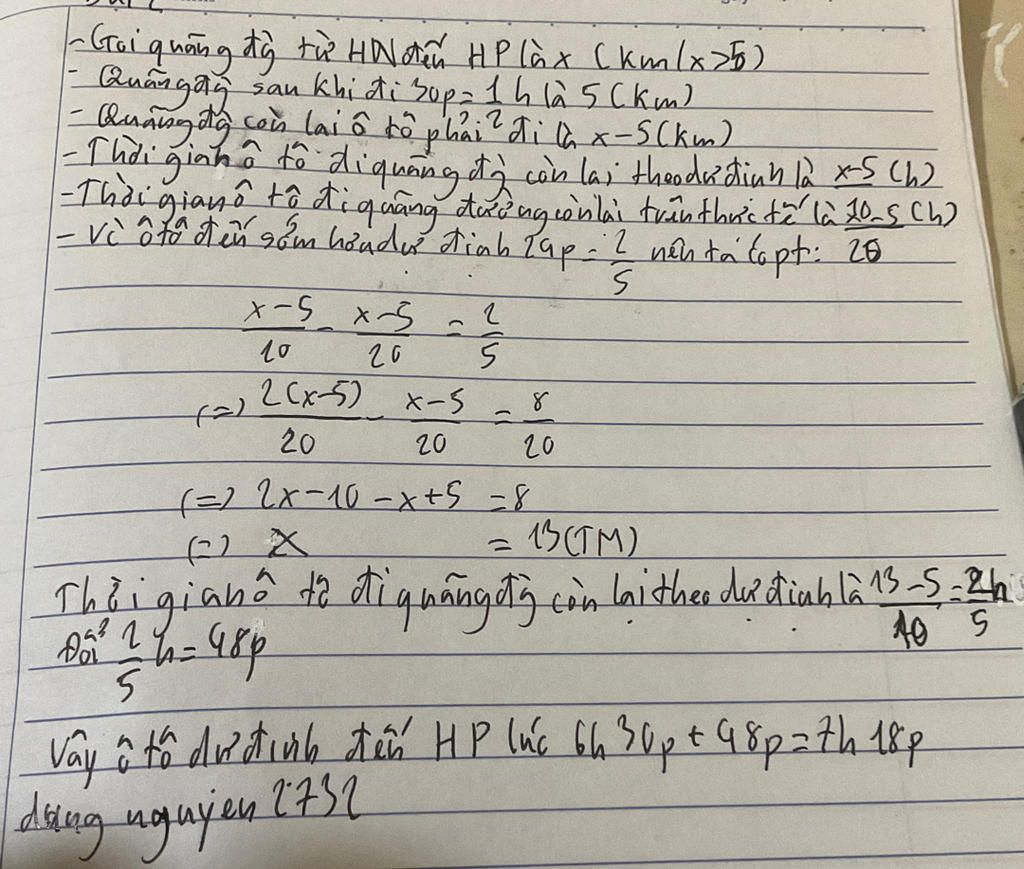 - Gọi quãng đg từ HN đến HP là x (km/x>5)
- Quãng đg sau khi đi 30p = 1 h là 5 (km)
2
- Quãng đg còn lại ô tô phải đi là x-5(km)
- Thời gian ô tô đi quãng đg còn lại theo dự định là x-5 (h)
- Thời gian ô tô đi quãng đường còn lại trên thực tế là 10-5 (h)
20
- Vì ô tô đến sớm hơn dự định 24p = 2/5 nên ta có pt:
x-5/10 - x-5/20 = 2/5
(=) 2(x-5)/20 - x-5/20 = 8/20
(=) 2x-10-x+5 = 8
(=) x = 13(TM)
Thời gian ô tô đi quãng đg còn lại theo dự định là 13-5/10 = 2h/5
Đổi 2/5 h = 48p
Vậy ô tô dự định đến HP lúc 6h30p + 48p = 7h18p
dung nguyen 2732